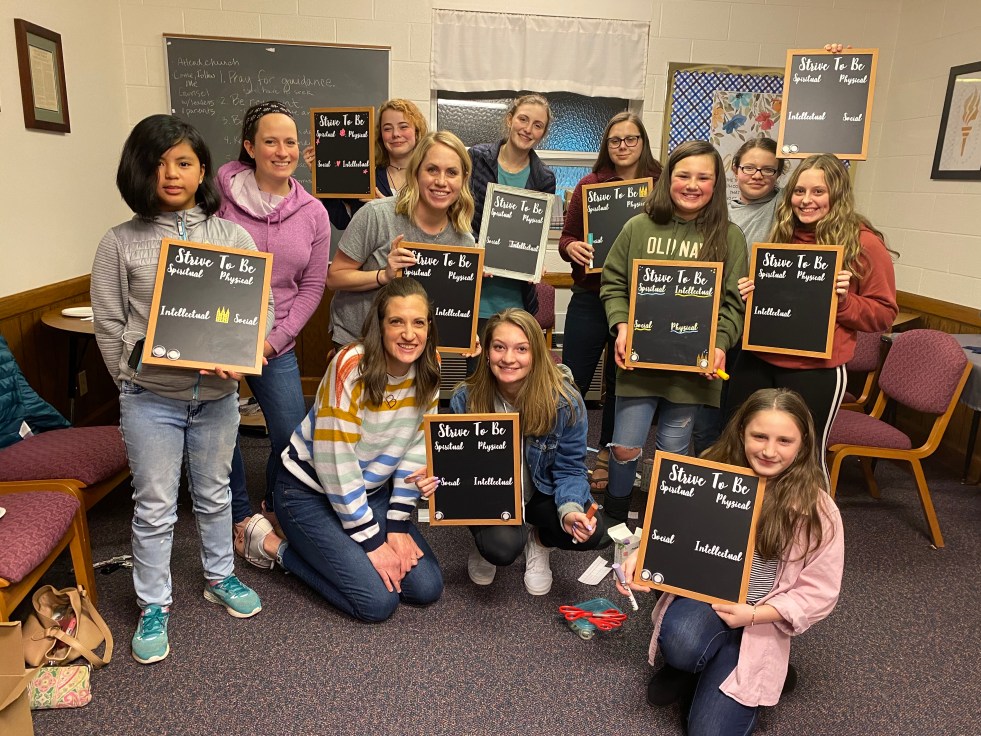 Attend church
Come, Follow
Me
1. Pray for guidance
2. Be
3.
4.
Strive To Be
Spiritual Physical
Social Intellectual
Strive To Be
Spiritual Physical
Intellectual Social
Strive To Be
Spiritual Physical
Intellectual Social
Strive To Be
Spiritual Physical
Intellectual
Strive To Be
Spiritual Physical
Social Intellectual
Strive To Be
Spiritual Physical
Social
OLD NAVY
Strive To Be
Spiritual Intellectual
Social Physical
Strive To Be
Spiritual Physical
Intellectual
Strive To Be
Spiritual Physical
Social Intellectual
Strive To Be
Spiritual Physical
Social Intellectual